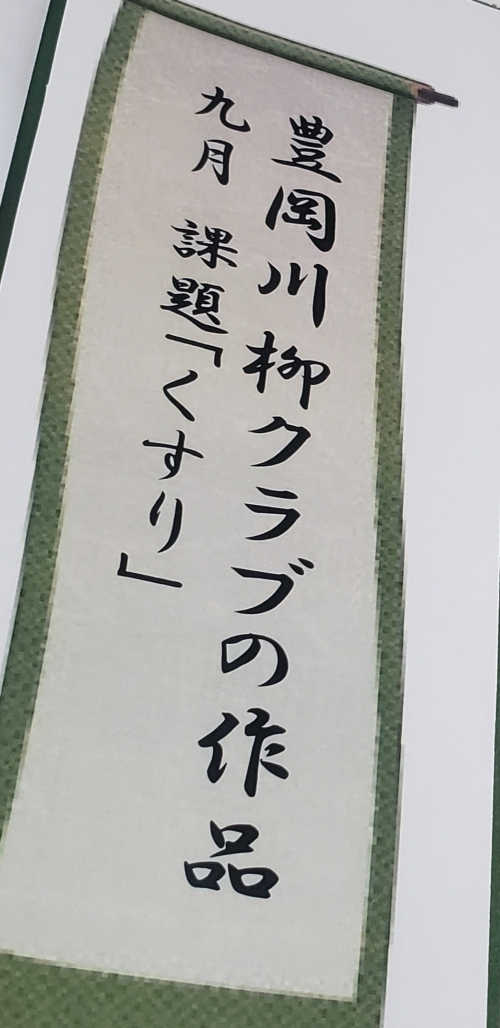 豊岡川柳クラブの作品
九月 課題「くすり」